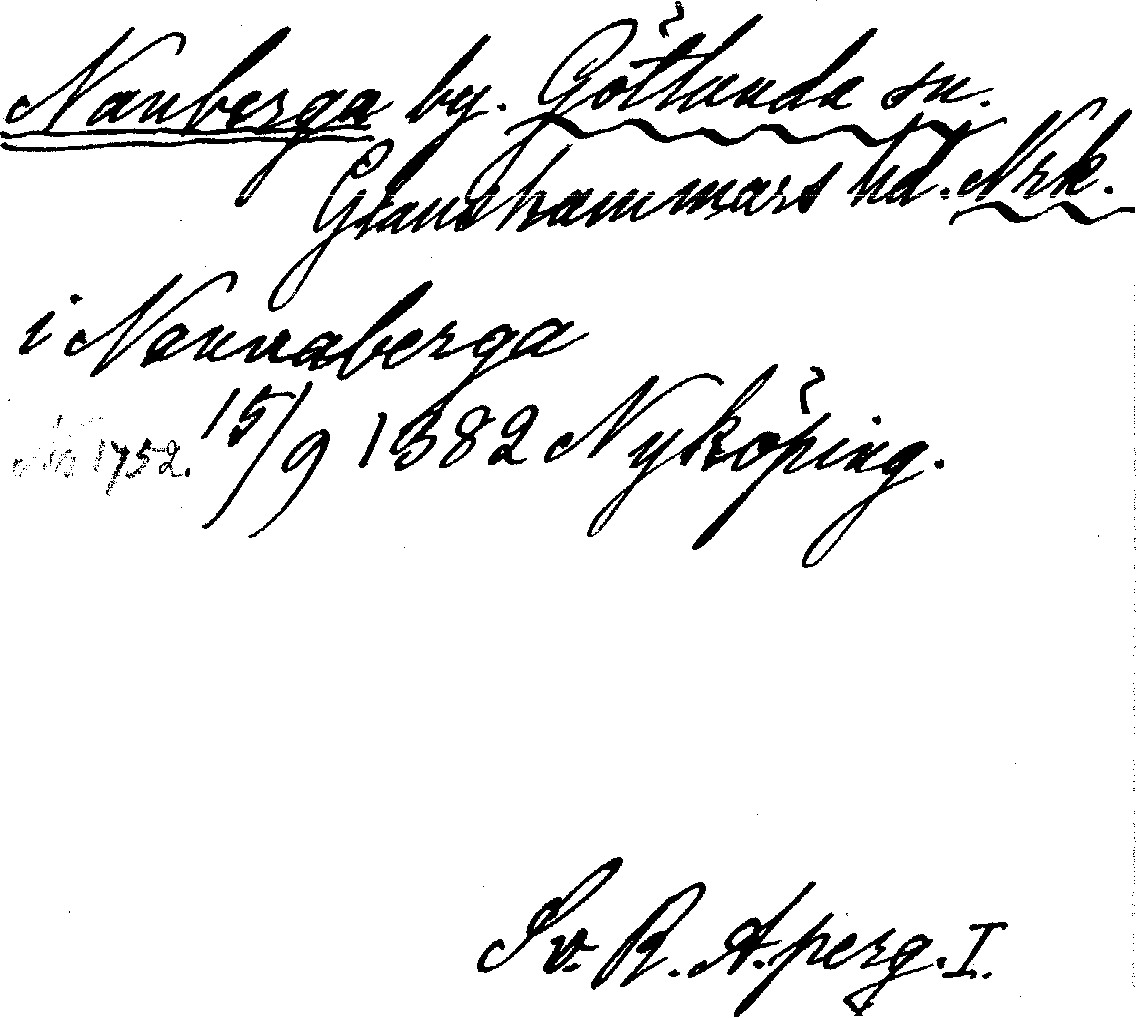 Nanberga by. Götlunda sn.
Glanshammars hd. Nrk.
i Nannaberga
No 1752. 15/9 1382 Nyköping.
Sv. R. A. perg. I.